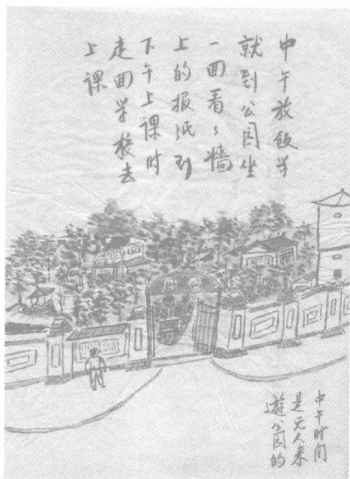 中午放飯学
就到公园坐
一回看々墙
上的报纸到
下午上课时
走回学校去
上课
中午时间
是无人来
遊公园的